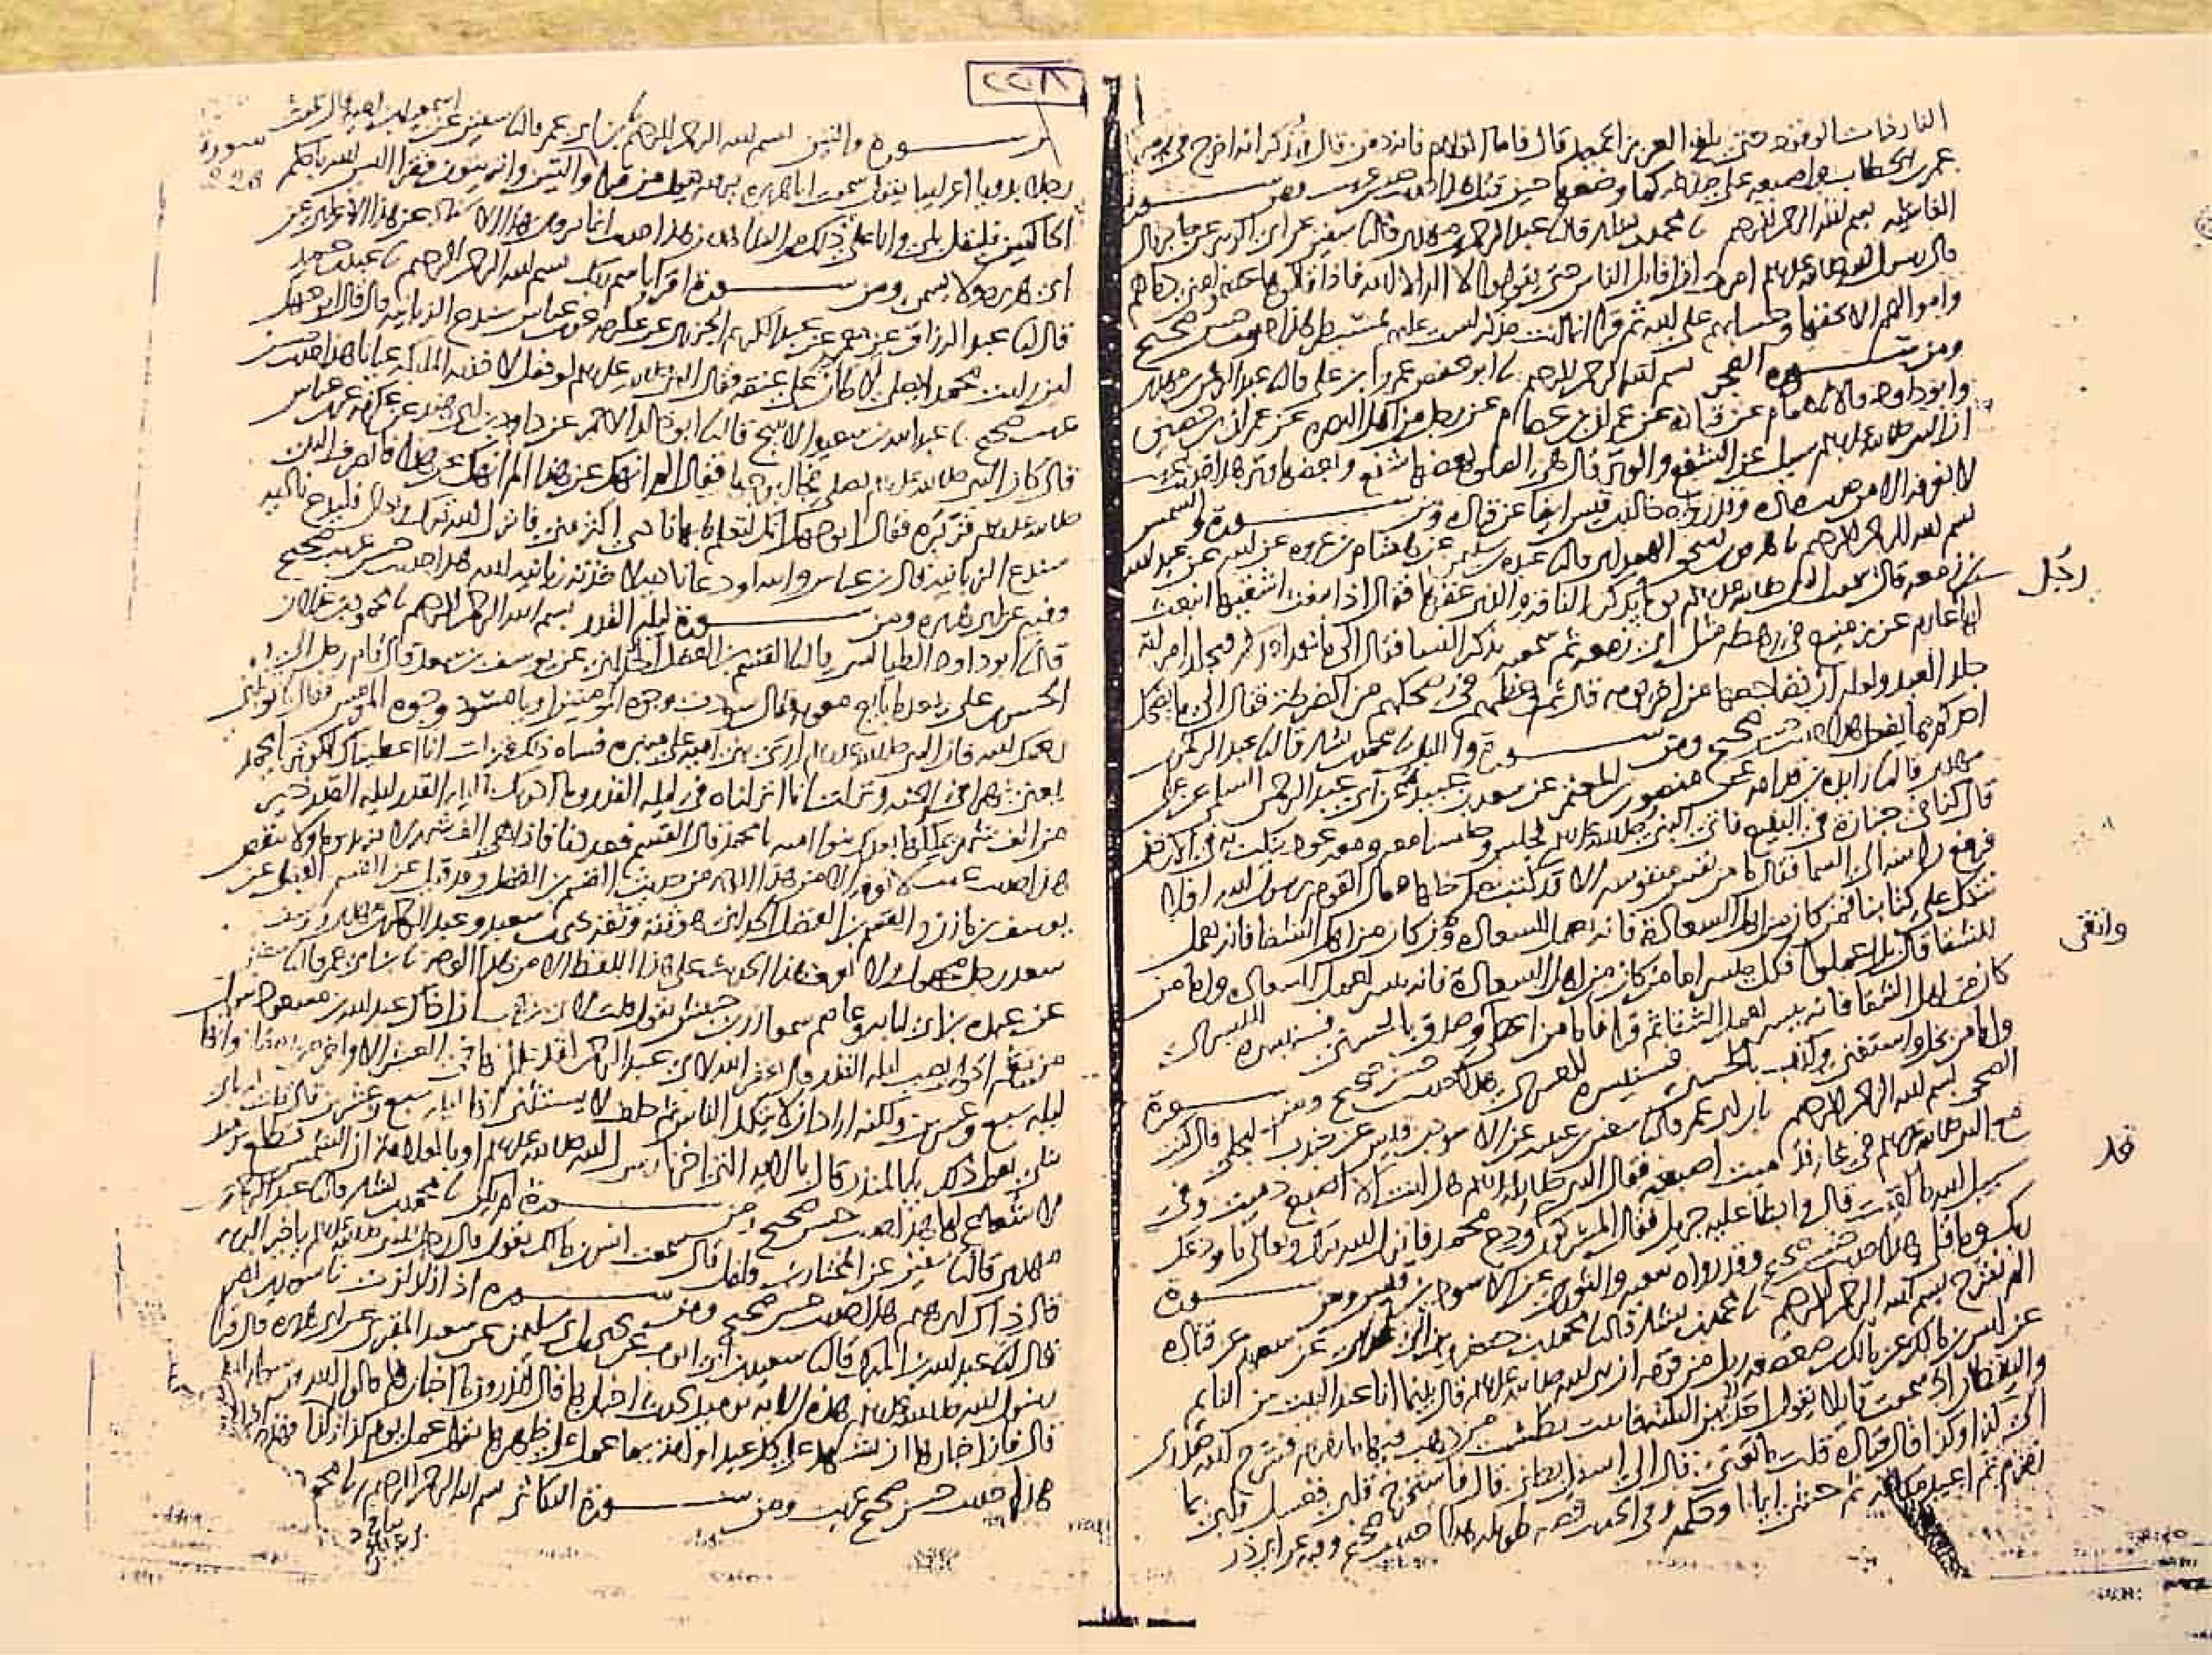 النار ذات الوقود حتى بلغ العزيز الحميد قال فاما الغلام فانه دفن قال فيذكر انه اخرج في زمن
عمر بن الخطاب واصبعه على صدغه كما وضعها حين قتل هذا حديث حسن غريب ومن سورة
الغاشيه بسم الله الرحمن الرحيم نا محمد بن بشار قال نا عبد الرحمن بن مهدي قال نا سفين عن ابي الزبير عن جابر قال
قال رسول الله صلى الله عليه وسلم امرت ان اقاتل الناس حتى يقولوا لا اله الا الله فاذا قالوها عصموا مني دماهم
واموالهم الا بحقها وحسابهم على الله ثم قرا انما انت مذكر لست عليهم بمسيطر هذا حديث حسن صحيح
ومن سورة الفجر بسم الله الرحمن الرحيم نا ابو حفص عمرو بن علي قال نا عبد الرحمن بن مهدي
وابو داود قالا نا همام عن قتاده عن عمران بن عصام عن رجل من اهل البصره عن عمران بن حصين
ان النبي صلى الله عليه وسلم سيل عن الشفع والوتر قال هي الصلوه بعضها شفع وبعضها وتر هذا حديث غريب
لا نعرفه الا من حديث قتاده وقد رواه خالد بن قيس ايضا عن قتاده ومن سورة والشمس
بسم الله الرحمن الرحيم نا هرون بن اسحق الهمداني قال نا عبده بن سليمن عن هشام بن عروه عن ابيه عن عبد الله
بن زمعه قال سمعت النبي صلى الله عليه وسلم يوما يذكر الناقه والذي عقرها فقال اذ انبعث اشقيها انبعث
رجل
لها عارم عزيز منيع في رهطه مثل ابي زمعه ثم سمعته يذكر النسا فقال الى ما يعمد احدكم فيجلد امراته
جلد العبد ولعله ان يضاجعها من اخر يومه قال ثم وعظهم في ضحكهم من الضرطة فقال الى ما يضحك
احدكم مما يفعل هذا حديث حسن صحيح ومن سورة والليل نا محمد بن بشار قال نا عبد الرحمن
بن مهدي قال نا زايده بن قدامه عن منصور بن المعتمر عن سعد بن عبيده عن ابي عبد الرحمن السلمي عن علي
قال كنا في جنازة في البقيع فاتى النبي صلى الله عليه وسلم فجلس وجلسنا معه ومعه عود ينكت به في الارض
فرفع راسه الى السما فقال ما من نفس منفوسه الا قد كتب مدخلها فقال القوم يرسول الله افلا
نتكل على كتابنا فمن كان من اهل السعادة فانه يعمل للسعاده ومن كان من اهل الشقا فانه يعمل
للشقا قال بل اعملوا فكل ميسر اما من كان من اهل السعادة فانه ييسر لعمل السعاده واما من
كان من اهل الشقا فانه ييسر لعمل الشقا ثم قرا فاما من اعطى وصدق بالحسنى فسنيسره لليسرى
واتقى
واما من بخل واستغنى وكذب بالحسنى فسنيسره للعسرى هذا حديث حسن صحيح ومن سورة
الضحى بسم الله الرحمن الرحيم نا ابن ابي عمر قال نا سفين بن عيينه عن الاسود بن قيس عن جندب البجلي قال كنت
مع النبي صلى الله عليه وسلم في غار فدميت اصبعه فقال النبي صلى الله عليه وسلم هل انت الا اصبع دميت وفي
سبيل الله ما لقيت قال وابطا عليه جبريل فقال المشركون ودع محمد فانزل الله تبارك وتعالى ما ودعك
قد
ربك وما قلى هذا حديث حسن صحيح وقد رواه شعبه والثوري عن الاسود بن قيس ومن سورة
الم نشرح بسم الله الرحمن الرحيم نا محمد بن بشار قال نا محمد بن جعفر وابن ابي عدي عن سعيد عن قتاده
عن انس بن مالك عن مالك بن صعصعه رجل من قومه ان نبي الله صلى الله عليه وسلم قال بينما انا عند البيت بين النايم
واليقظان اذ سمعت قايلا يقول احد بين الثلثه فاتيت بطست من ذهب فيها ما زمزم فشرح صدري
الى كذا وكذا قال قتاده قلت ما يعني قال الى اسفل بطني قال فاستخرج قلبي فغسل قلبي بما
زمزم ثم اعيد مكانه ثم حشي ايمانا وحكمه وفي الحديث قصه طويله هذا حديث حسن صحيح وفيه عن ابي ذر
٢٢٨
سورة والتين بسم الله الرحمن الرحيم نا ابن ابي عمر قال نا سفين عن اسمعيل بن اميه قال سمعت
سورة
228
رجلا بدويا اعرابيا يقول سمعت ابا هريره يرويه يقول من قرا والتين والزيتون فقرا اليس الله باحكم
الحاكمين فليقل بلى وانا على ذلك من الشاهدين هذا حديث انما يروى بهذا الاسناد عن هذا الاعرابي عن
ابي هريره ولا يسمى ومن سورة اقرا باسم ربك بسم الله الرحمن الرحيم نا عبد بن حميد
قال نا عبد الرزاق عن معمر عن عبد الكريم الجزري عن عكرمه عن ابن عباس سندع الزبانيه قال قال ابو جهل
لين رايت محمدا يصلي لاطان على عنقه فقال النبي صلى الله عليه وسلم لو فعل لاخذته الملايكه عيانا هذا حديث حسن
غريب صحيح نا عبد الله بن سعيد الاشج قال نا ابو خالد الاحمر عن داود بن ابي هند عن عكرمه عن ابن عباس
قال كان النبي صلى الله عليه وسلم يصلي فجا ابو جهل فقال الم انهك عن هذا الم انهك عن هذا فانصرف النبي
صلى الله عليه وسلم فزبره فقال ابو جهل انك لتعلم ما بها ناد اكثر مني فانزل الله تبارك وتعالى فليدع ناديه
سندع الزبانيه قال ابن عباس والله لو دعا ناديه لاخذته زبانيه الله هذا حديث حسن غريب صحيح
وفيه عن ابي هريره ومن سورة ليله القدر بسم الله الرحمن الرحيم نا محمود بن غيلان
قال نا ابو داود الطيالسي قال نا القسم بن الفضل الحداني عن يوسف بن سعد قال قام رجل الى
الحسن بن علي بعد ما بايع معويه فقال سودت وجوه المومنين او يا مسود وجوه المومنين فقال لا تونبني
رحمك الله فان النبي صلى الله عليه وسلم اري بني اميه على منبره فساه ذلك فنزلت انا اعطيناك الكوثر يا محمد
يعني نهرا في الجنه ونزلت انا انزلناه في ليله القدر وما ادراك ما ليله القدر ليله القدر خير
من الف شهر يملكها بعدك بنوا اميه يا محمد قال القسم فعددناها فاذا هي الف شهر لا يزيد يوم ولا ينقص
هذا حديث غريب لا نعرفه الا من هذا الوجه من حديث القسم بن الفضل وقد قيل عن القسم بن الفضل عن
يوسف بن مازن والقسم بن الفضل الحداني هو ثقه وثقه يحيى بن سعيد وعبد الرحمن بن مهدي ويوسف بن
سعد رجل مجهول ولا نعرف هذا الحديث على هذا اللفظ الا من هذا الوجه نا ابن ابي عمر قال نا سفين
عن عبده بن ابي لبابه وعاصم سمعا زر بن حبيش يقول قلت لابي بن كعب ان اخاك عبد الله بن مسعود يقول
من يقم الحول يصب ليله القدر قال يغفر الله لابي عبد الرحمن لقد علم انها في العشر الاواخر من رمضان وانها
ليله سبع وعشرين ولكنه اراد ان لا يتكل الناس ثم حلف لا يستثني انها ليله سبع وعشرين قال قلت له باي
شي تقول ذلك يابا المنذر قال بالايه التي اخبرنا رسول الله صلى الله عليه وسلم او بالعلامه ان الشمس تطلع يوميذ
لا شعاع لها هذا حديث حسن صحيح ومن سورة لم يكن نا محمد بن بشار قال نا عبد الرحمن بن
مهدي قال نا سفين عن المختار بن فلفل قال سمعت انس بن مالك يقول قال رجل للنبي صلى الله عليه وسلم يا خير البريه
قال ذاك ابرهيم هذا حديث حسن صحيح ومن سورة اذا زلزلت نا سويد بن نصر
قال نا عبد الله بن المبارك قال نا سعيد بن ابي ايوب عن يحيى بن ابي سليمن عن سعيد المقبري عن ابي هريره قال قرا
رسول الله صلى الله عليه وسلم هذه الايه يوميذ تحدث اخبارها قال اتدرون ما اخبارها قالوا الله ورسوله اعلم
قال فان اخبارها ان تشهد على كل عبد او امه بما عمل على ظهرها تقول عمل يوم كذا كذا وكذا فهذه اخبارها
هذا حديث حسن صحيح غريب ومن سورة التكاثر بسم الله الرحمن الرحيم نا محمود